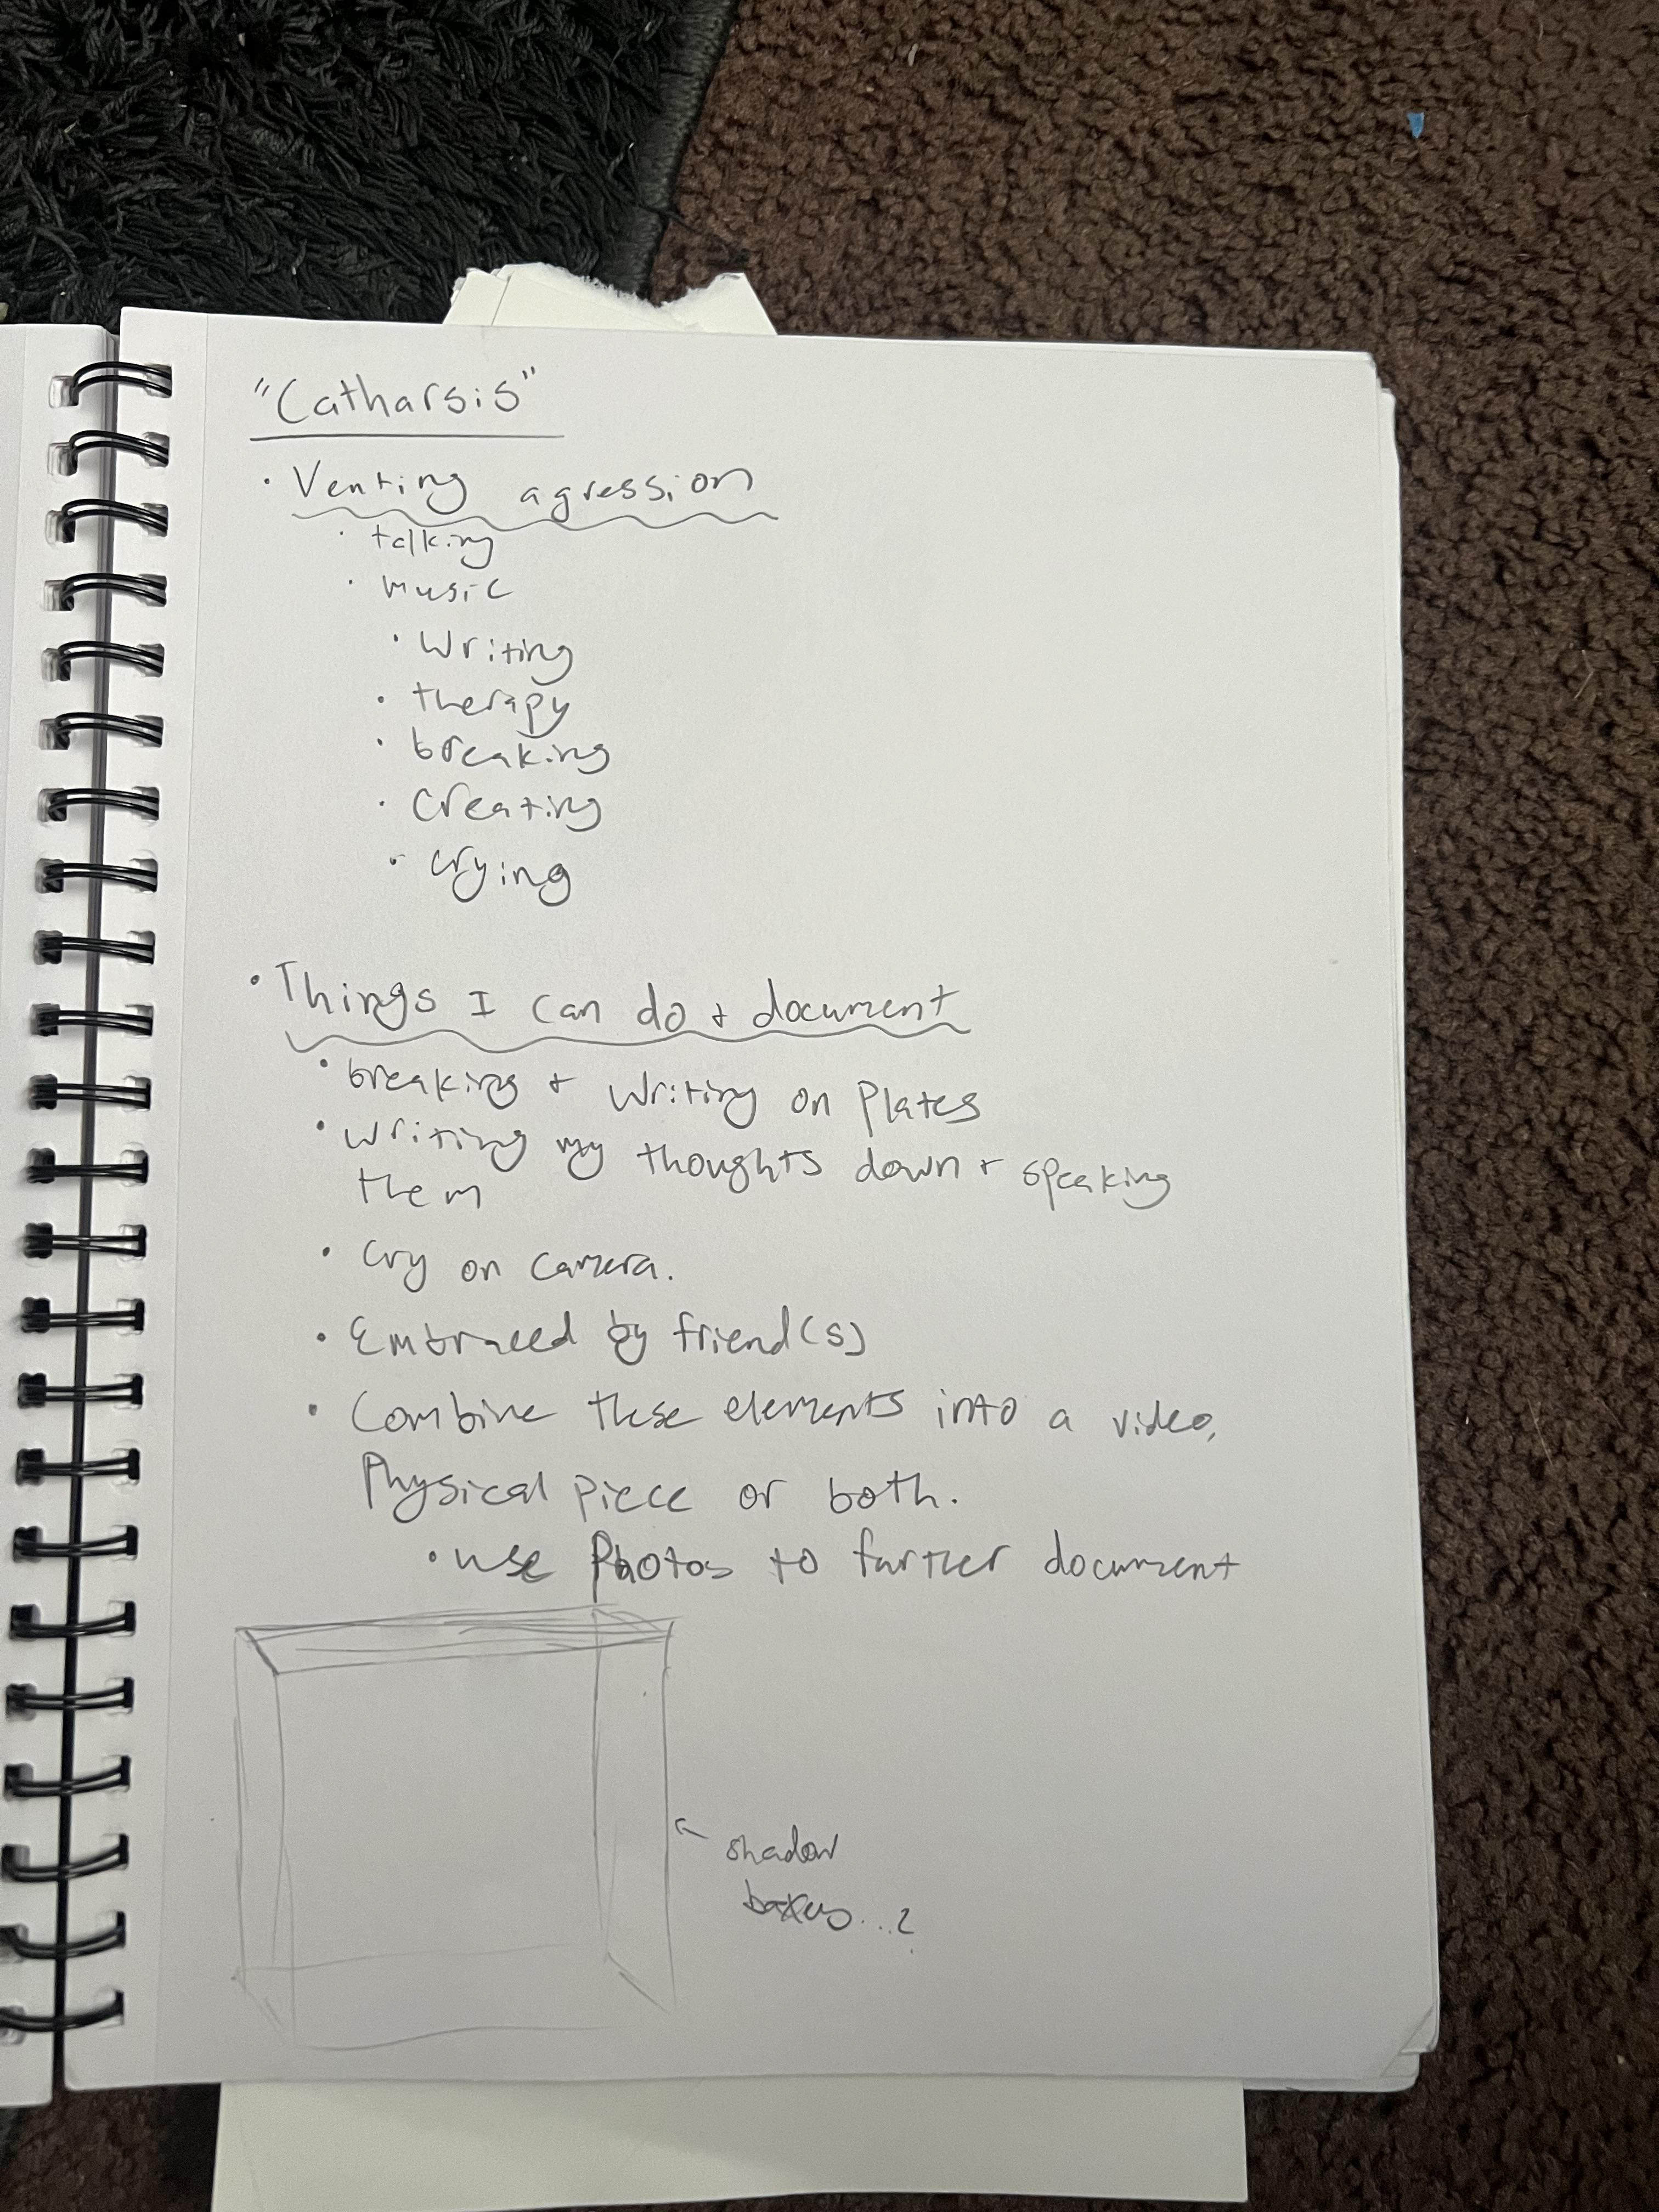 "Catharsis"
· Venting agression
· talking
· music
· Writing
· therapy
· breaking
· Creating
· Crying
· Things I can do + document
· breaking + writing on plates
· writing my thoughts down + speaking
them
· Cry on camera.
· Embraced by friend(s)
· Combine these elements into a video,
Physical piece or both.
· use Photos to further document
shadow
boxes...?